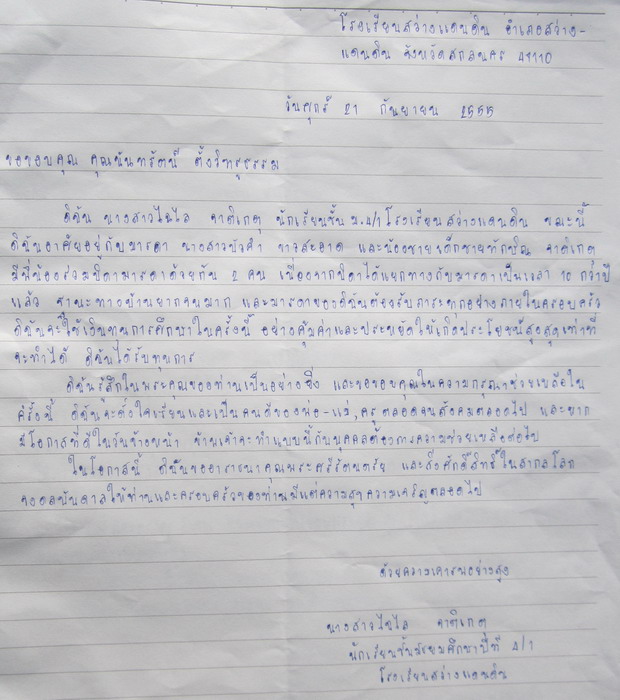 โรงเรียนสว่างแดนดิน อำเภอสว่าง-
แดนดิน จังหวัดสกลนคร 47110
วันศุกร์ 21 กันยายน 2555
ขอขอบคุณ คุณนันทรัตน์ ตั้งวิทรูธรรม
ดิฉัน นางสาวไฉไล ชาติเกตุ นักเรียนชั้น ม.4/1 โรงเรียนสว่างแดนดิน ขณะนี้
ดิฉันอาศัยอยู่กับมารดา นางสาวบัวคำ ขาวสะอาด และน้องชายเด็กชายทักษิณ ชาติเกตุ
มีพี่น้องร่วมบิดามารดาด้วยกัน 2 คน เนื่องจากบิดาได้แยกทางกับมารดาเป็นเวลา 10 กว่าปี
แล้ว ฐานะทางบ้านยากจนมาก และมารดาของดิฉันต้องรับภาระทุกอย่างภายในครอบครัว
ดิฉันจะใช้เงินทุนการศึกษาในครั้งนี้ อย่างคุ้มค่าและประหยัดให้เกิดประโยชน์สูงสุดเท่าที่
จะทำได้ ดิฉันได้รับทุนการ
ดิฉันรู้สึกในพระคุณของท่านเป็นอย่างยิ่ง และขอขอบคุณในความกรุณาช่วยเหลือใน
ครั้งนี้ ดิฉันจะตั้งใจเรียนและเป็นคนดีของพ่อ-แม่, ครู ตลอดจนสังคมตลอดไป และหาก
มีโอกาสที่ดีในวันข้างหน้า ข้าพเจ้าจะทำแบบนี้กับบุคคลต้องการความช่วยเหลือต่อไป
ในโอกาสนี้ ดิฉันขออาราธนาคุณพระศรีรัตนตรัย และสิ่งศักดิ์สิทธิ์ในสากลโลก
จงดลบันดาลให้ท่านและครอบครัวของท่านมีแต่ความสุขความเจริญตลอดไป
ด้วยความเคารพอย่างสูง
นางสาวไฉไล ชาติเกตุ
นักเรียนชั้นมัธยมศึกษาปีที่ 4/1
โรงเรียนสว่างแดนดิน